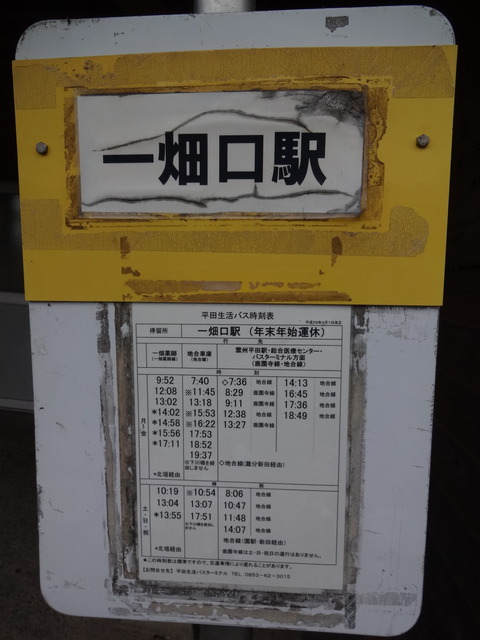 一畑口駅
平田生活バス時刻表
停留所 一畑口駅（年末年始運休）
行先
一畑薬師 地合車庫 雲州平田駅・総合医療センター・
（一畑薬師線） （地合線） バスターミナル方面
（鹿園寺線・地合線）
時刻
月～金
9:52 7:40 ◇7:36 地合線 14:13 地合線
12:08 ※11:45 8:29 鹿園寺線 16:45 地合線
13:02 13:18 9:11 鹿園寺線 17:36 地合線
*14:02 ※15:53 12:38 地合線 18:49 地合線
*14:58 ※16:22 13:27 鹿園寺線
*15:56 17:53
*17:11 18:52
19:37
*北場経由 ◇地合線(灘分新田経由)
時刻
土・日・祝
10:19 ※10:54 8:06 地合線
13:04 13:07 10:47 地合線
*13:55 17:51 11:48 地合線
14:07 地合線
*北場経由
鹿園寺線は土・日・祝日の運行はありません。
●この時刻表は標準ですので、交通事情により遅れることがあります。
【お問合せ先】 平田生活バスターミナル TEL 0853-62-3015